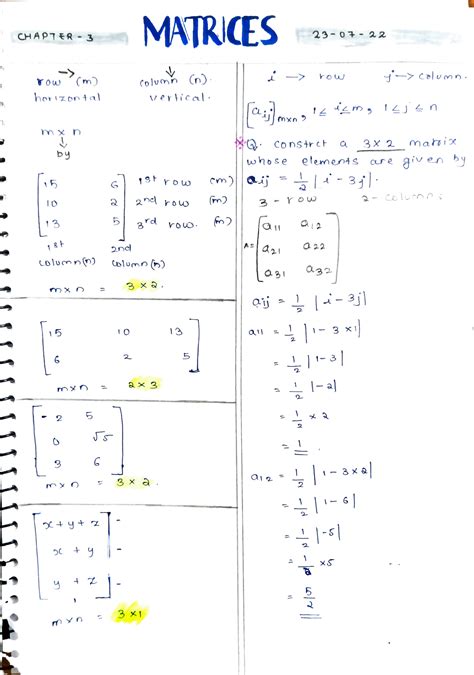 CHAPTER - 3
MATRICES
23-07-22
row (m) column (n).
horizontal vertical.
m x n
↓
by
15 6 1st row (m)
10 2 2nd row (m)
13 5 3rd row (m)
1st 2nd
column(n) column(n)
m x n = 3 x 2.
15 10 13
6 2 5
m x n = 2 x 3
- 2 5
0 √5
3 6
m x n = 3 x 2.
x + y + z -
x + y -
y + z -
m x n = 3 x 1
i → row j → column.
[aij] mxn, 1 ≤ i ≤ m, 1 ≤ j ≤ n
Q. constrct a 3 x 2 matrix
whose elements are given by
aij = 1/2 | i - 3j |.
3 - row 2 - column
A = a11 a12
a21 a22
a31 a32
aij = 1/2 | i - 3j |
a11 = 1/2 | 1 - 3 x 1 |
= 1/2 | 1 - 3 |
= 1/2 | -2 |
= 1/2 x 2
= 1
a12 = 1/2 | 1 - 3 x 2 |
= 1/2 | 1 - 6 |
= 1/2 | -5 |
= 1/2 x 5
= 5/2